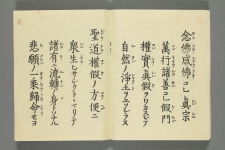 念佛成佛コレ眞宗
萬行諸善コレ假門
權實眞假ヲワカスシテ
自然ノ淨土ヲエソシラヌ
聖道權假ノ方便ニ
衆生ヒサシクトヽマリテ
諸有ニ流轉ノ身トソナル
悲願ノ一乘歸命セヨ